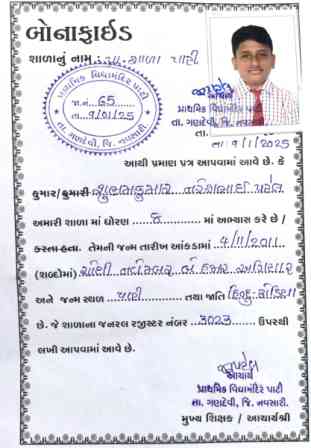 બોનાફાઈડ
શાળાનું નામ : પ્રા. શાળા પાટી
પ્રાથમિક વિદ્યામંદિર પાટી
જા.નં. 65
તા. 9/01/25
તા. ગણદેવી, જિ. નવસારી.
આચાર્ય
પ્રાથમિક વિદ્યામંદિર પાટી
તા. ગણદેવી, જિ. નવસારી.
તા. 9/1/2025
આથી પ્રમાણ પત્ર આપવામાં આવે છે. કે
કુમાર/કુમારી પટેલ
અમારી શાળા માં ધોરણ ૮ માં અભ્યાસ કરે છે /
કરતા હતા. તેમની જન્મ તારીખ આંકડામાં 4/11/2011
(શબ્દોમાં) ચોથી નવેમ્બર બે હજાર અગિયાર
અને જન્મ સ્થળ પાટી તથા જાતિ હિન્દુ-
છે. જે શાળાના જનરલ રજીસ્ટર નંબર 3023 ઉપરથી
લખી આપવામાં આવે છે.
આચાર્ય
પ્રાથમિક વિદ્યામંદિર પાટી
તા. ગણદેવી, જિ. નવસારી.
મુખ્ય શિક્ષક / આચાર્યશ્રી